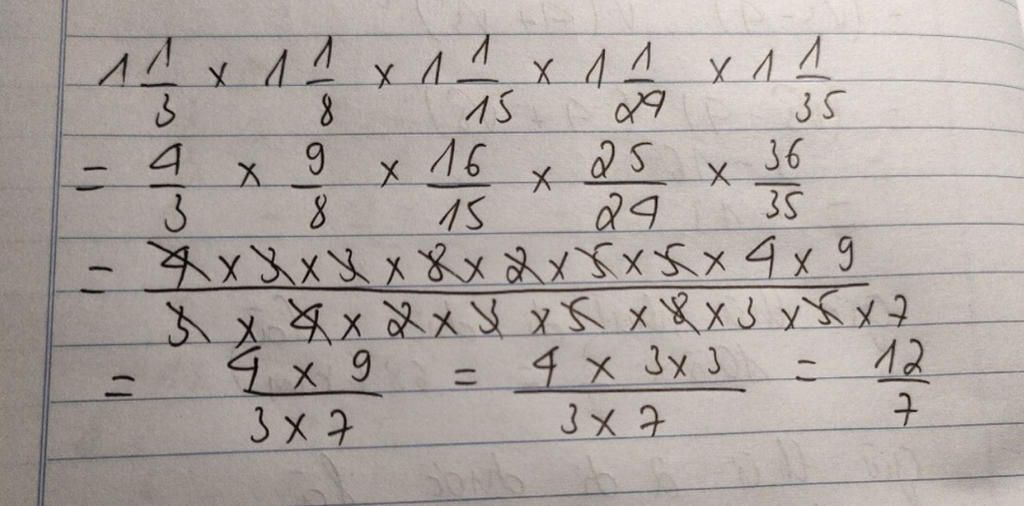 1 1/3 × 1 1/8 × 1 1/15 × 1 1/24 × 1 1/35
= 4/3 × 9/8 × 16/15 × 25/24 × 36/35
= (4 × 3 × 3 × 8 × 2 × 5 × 5 × 4 × 9)/(3 × 4 × 2 × 3 × 5 × 8 × 3 × 5 × 7)
= (4 × 9)/(3 × 7) = (4 × 3 × 3)/(3 × 7) = 12/7